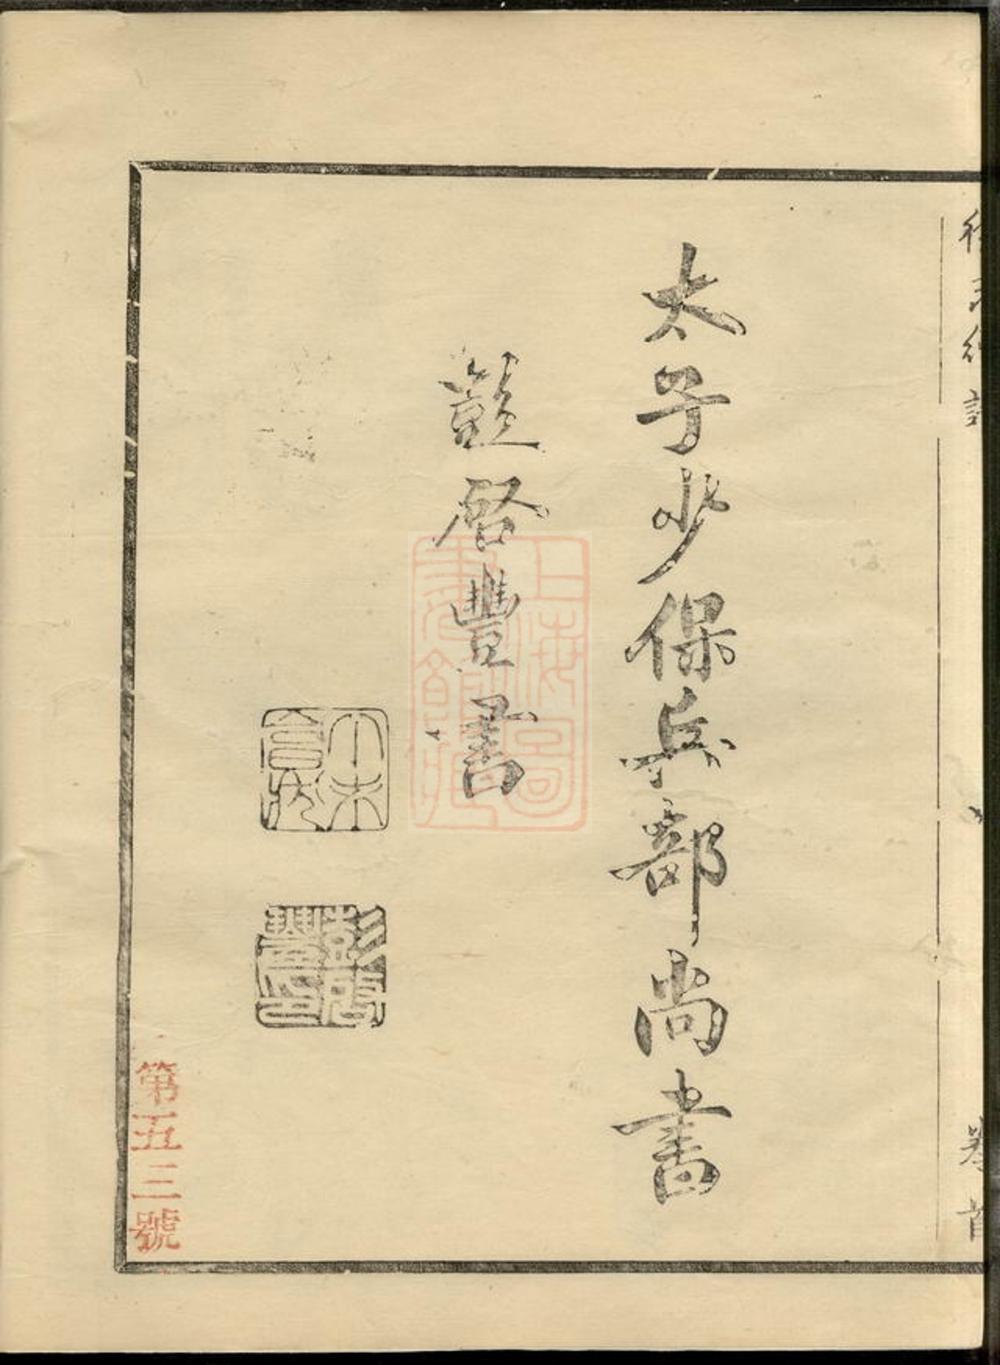 卷首
太子少保兵部尚書
彭啓豐書
上海圖書館藏
彭啟豐印
第五三號